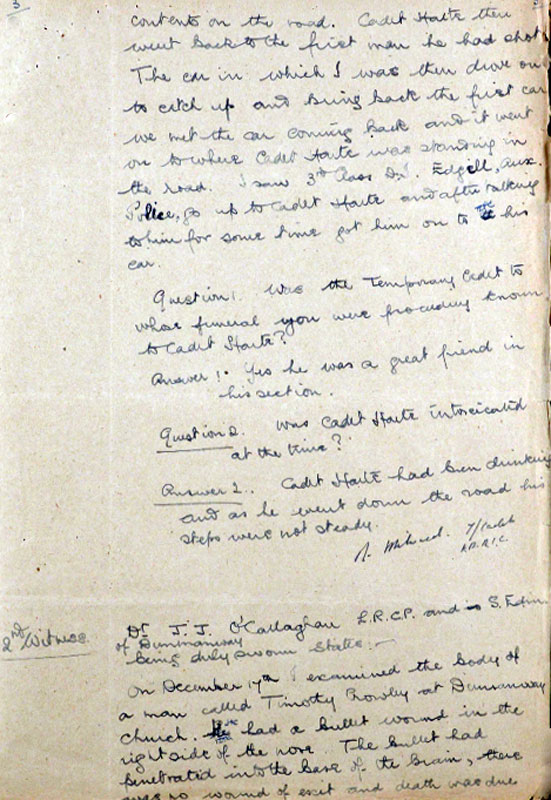 3
contents on the road. Cadet Harte then
went back to the first man he had shot
The car in which I was then drove on
to catch up and bring back the first car
we met the car coming back and it went
on to where Cadet Harte was standing in
the road. I saw 3rd Class D.I. Edgell, Aux.
Police, go up to Cadet Harte and after talking
to him for some time got him on to his
car.
Question 1. Was the Temporary Cadet to
whose funeral you were proceeding known
to Cadet Harte?
Answer 1. Yes he was a great friend in
his section.
Question 2. Was Cadet Harte intoxicated
at the time?
Answer 2. Cadet Harte had been drinking
and as he went down the road his
steps were not steady.
T/Cadet
A.D.R.I.C
2nd Witness.
Dr. J.J. O'Callaghan L.R.C.P. and S. Edin
of Dunmanway
being duly sworn states:-
On December 17th I examined the body of
a man called Timothy Crowley at Dunmanway
church. He had a bullet wound in the
right side of the nose. The bullet had
penetrated into the base of the brain, there
was no wound of exit and death was due